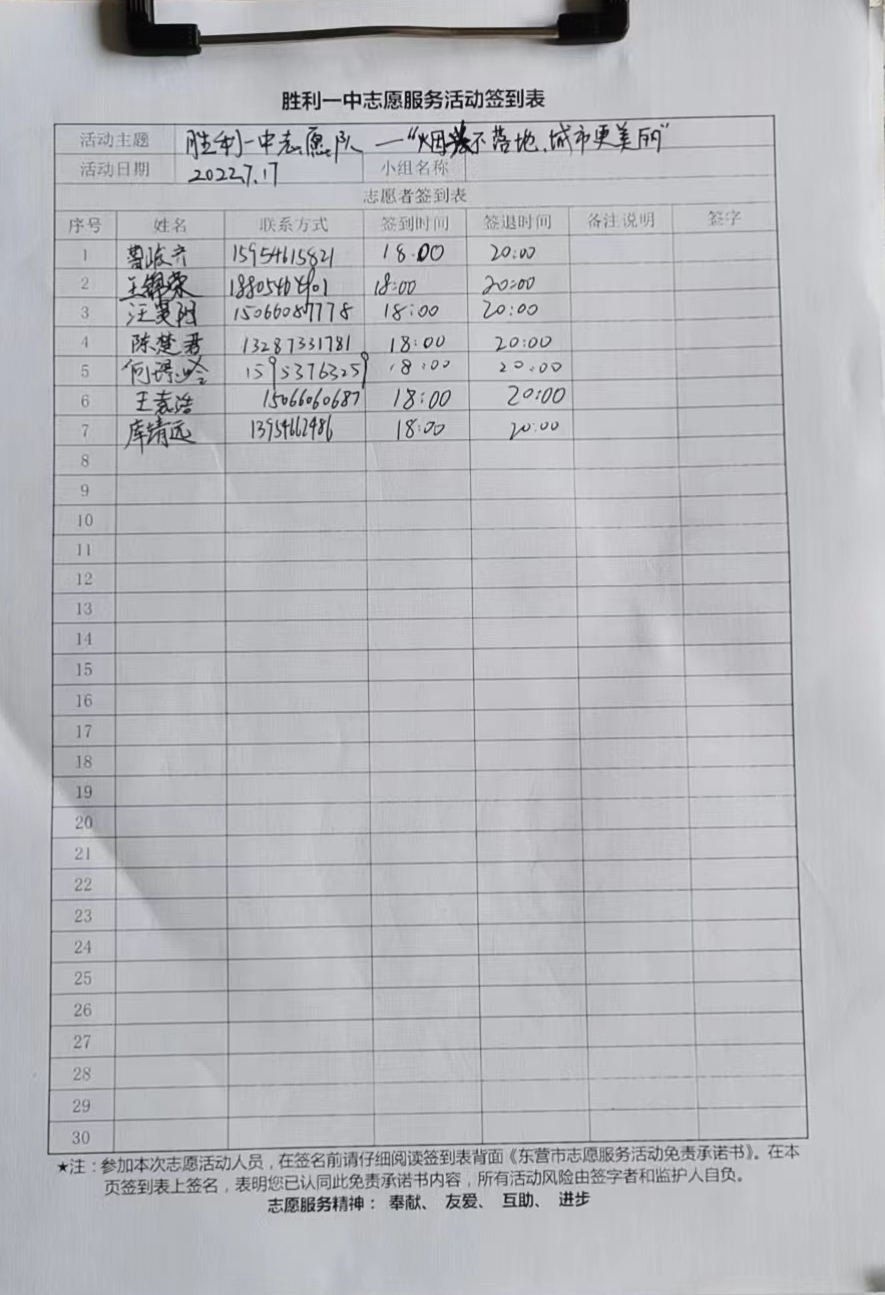 胜利一中志愿服务活动签到表
活动主题 胜利一中志愿队 —“烟头不落地,城市更美丽”
活动日期 2022.7.17 小组名称
志愿者签到表
序号 姓名 联系方式 签到时间 签退时间 备注说明 签字
1 曹峻齐 15954615821 18:00 20:00
2 王锦荣 18:00 20:00
3 汪昊阳 15066087778 18:00 20:00
4 陈楚君 13287331781 18:00 20:00
5 15953763259 18:00 20:00
6 王袁浩 15066060687 18:00 20:00
7 库靖远 13954662486 18:00 20:00
8
9
10
11
12
13
14
15
16
17
18
19
20
21
22
23
24
25
26
27
28
29
30
★注：参加本次志愿活动人员，在签名前请仔细阅读签到表背面《东营市志愿服务活动免责承诺书》。在本
页签到表上签名，表明您已认同此免责承诺书内容，所有活动风险由签字者和监护人自负。
志愿服务精神： 奉献、 友爱、 互助、 进步